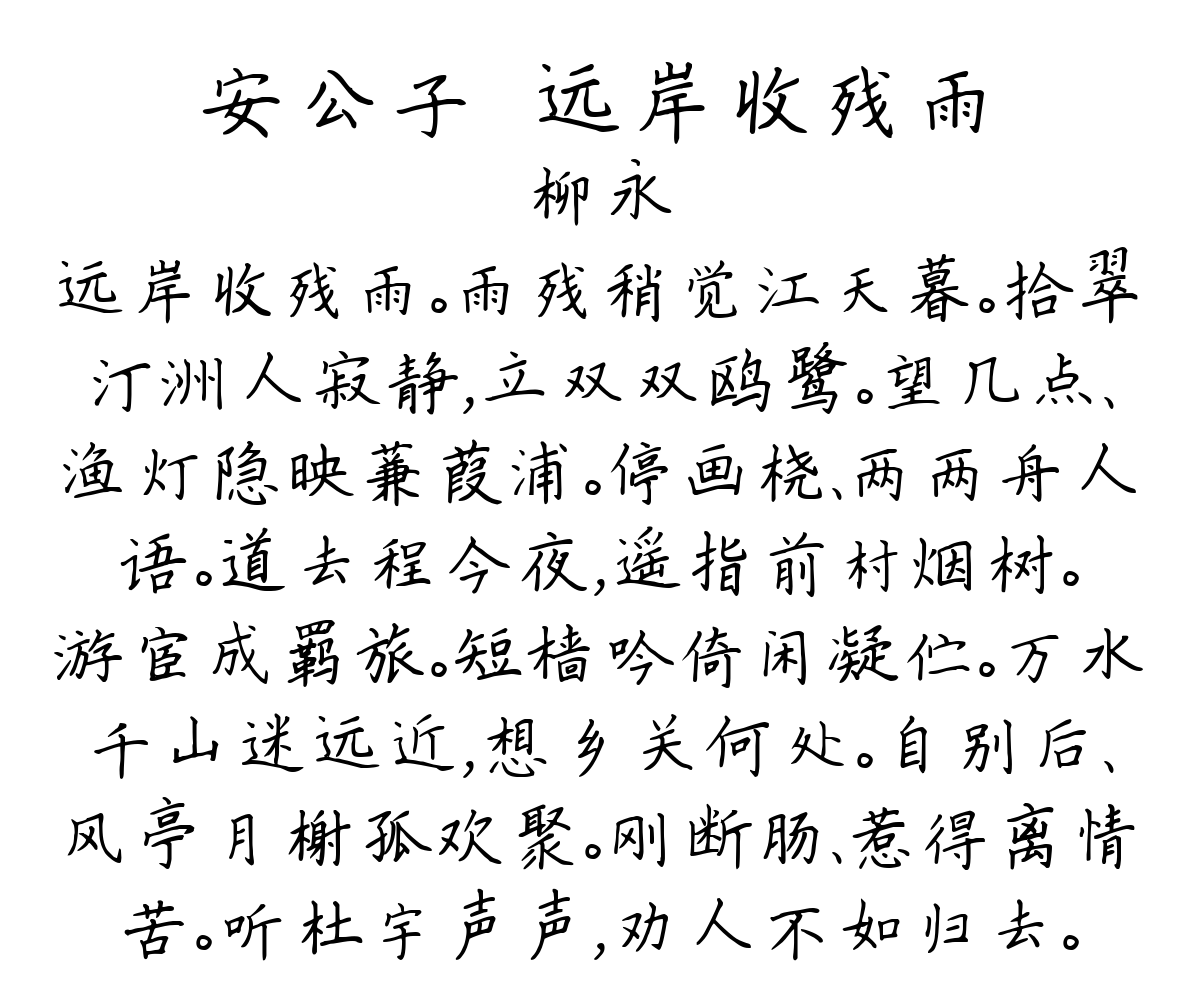 安公子 远岸收残雨
柳永
远岸收残雨。雨残稍觉江天暮。拾翠
汀洲人寂静,立双双鸥鹭。望几点、
渔灯隐映蒹葭浦。停画桡、两两舟人
语。道去程今夜,遥指前村烟树。
游宦成羁旅。短樯吟倚闲凝伫。万水
千山迷远近,想乡关何处。自别后、
风亭月榭孤欢聚。刚断肠、惹得离情
苦。听杜宇声声,劝人不如归去。